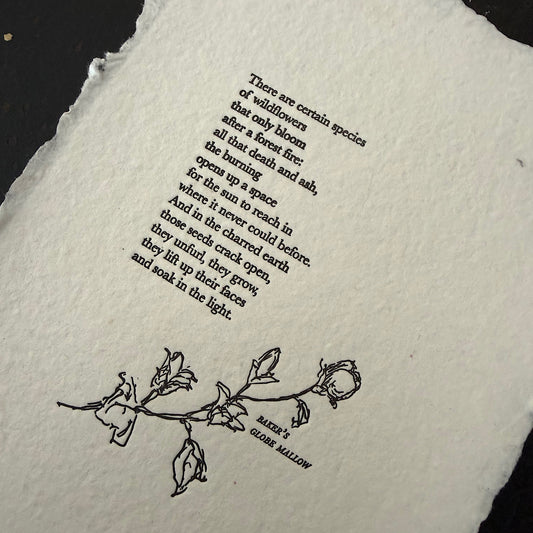 There are certain species
of wildflowers
that only bloom
after a forest fire:
all that death and ash,
the burning
opens up a space
for the sun to reach in
where it never could before.
And in the charred earth
those seeds crack open,
they unfurl, they grow,
they lift up their faces
and soak in the light.
BAKER'S
GLOBE MALLOW